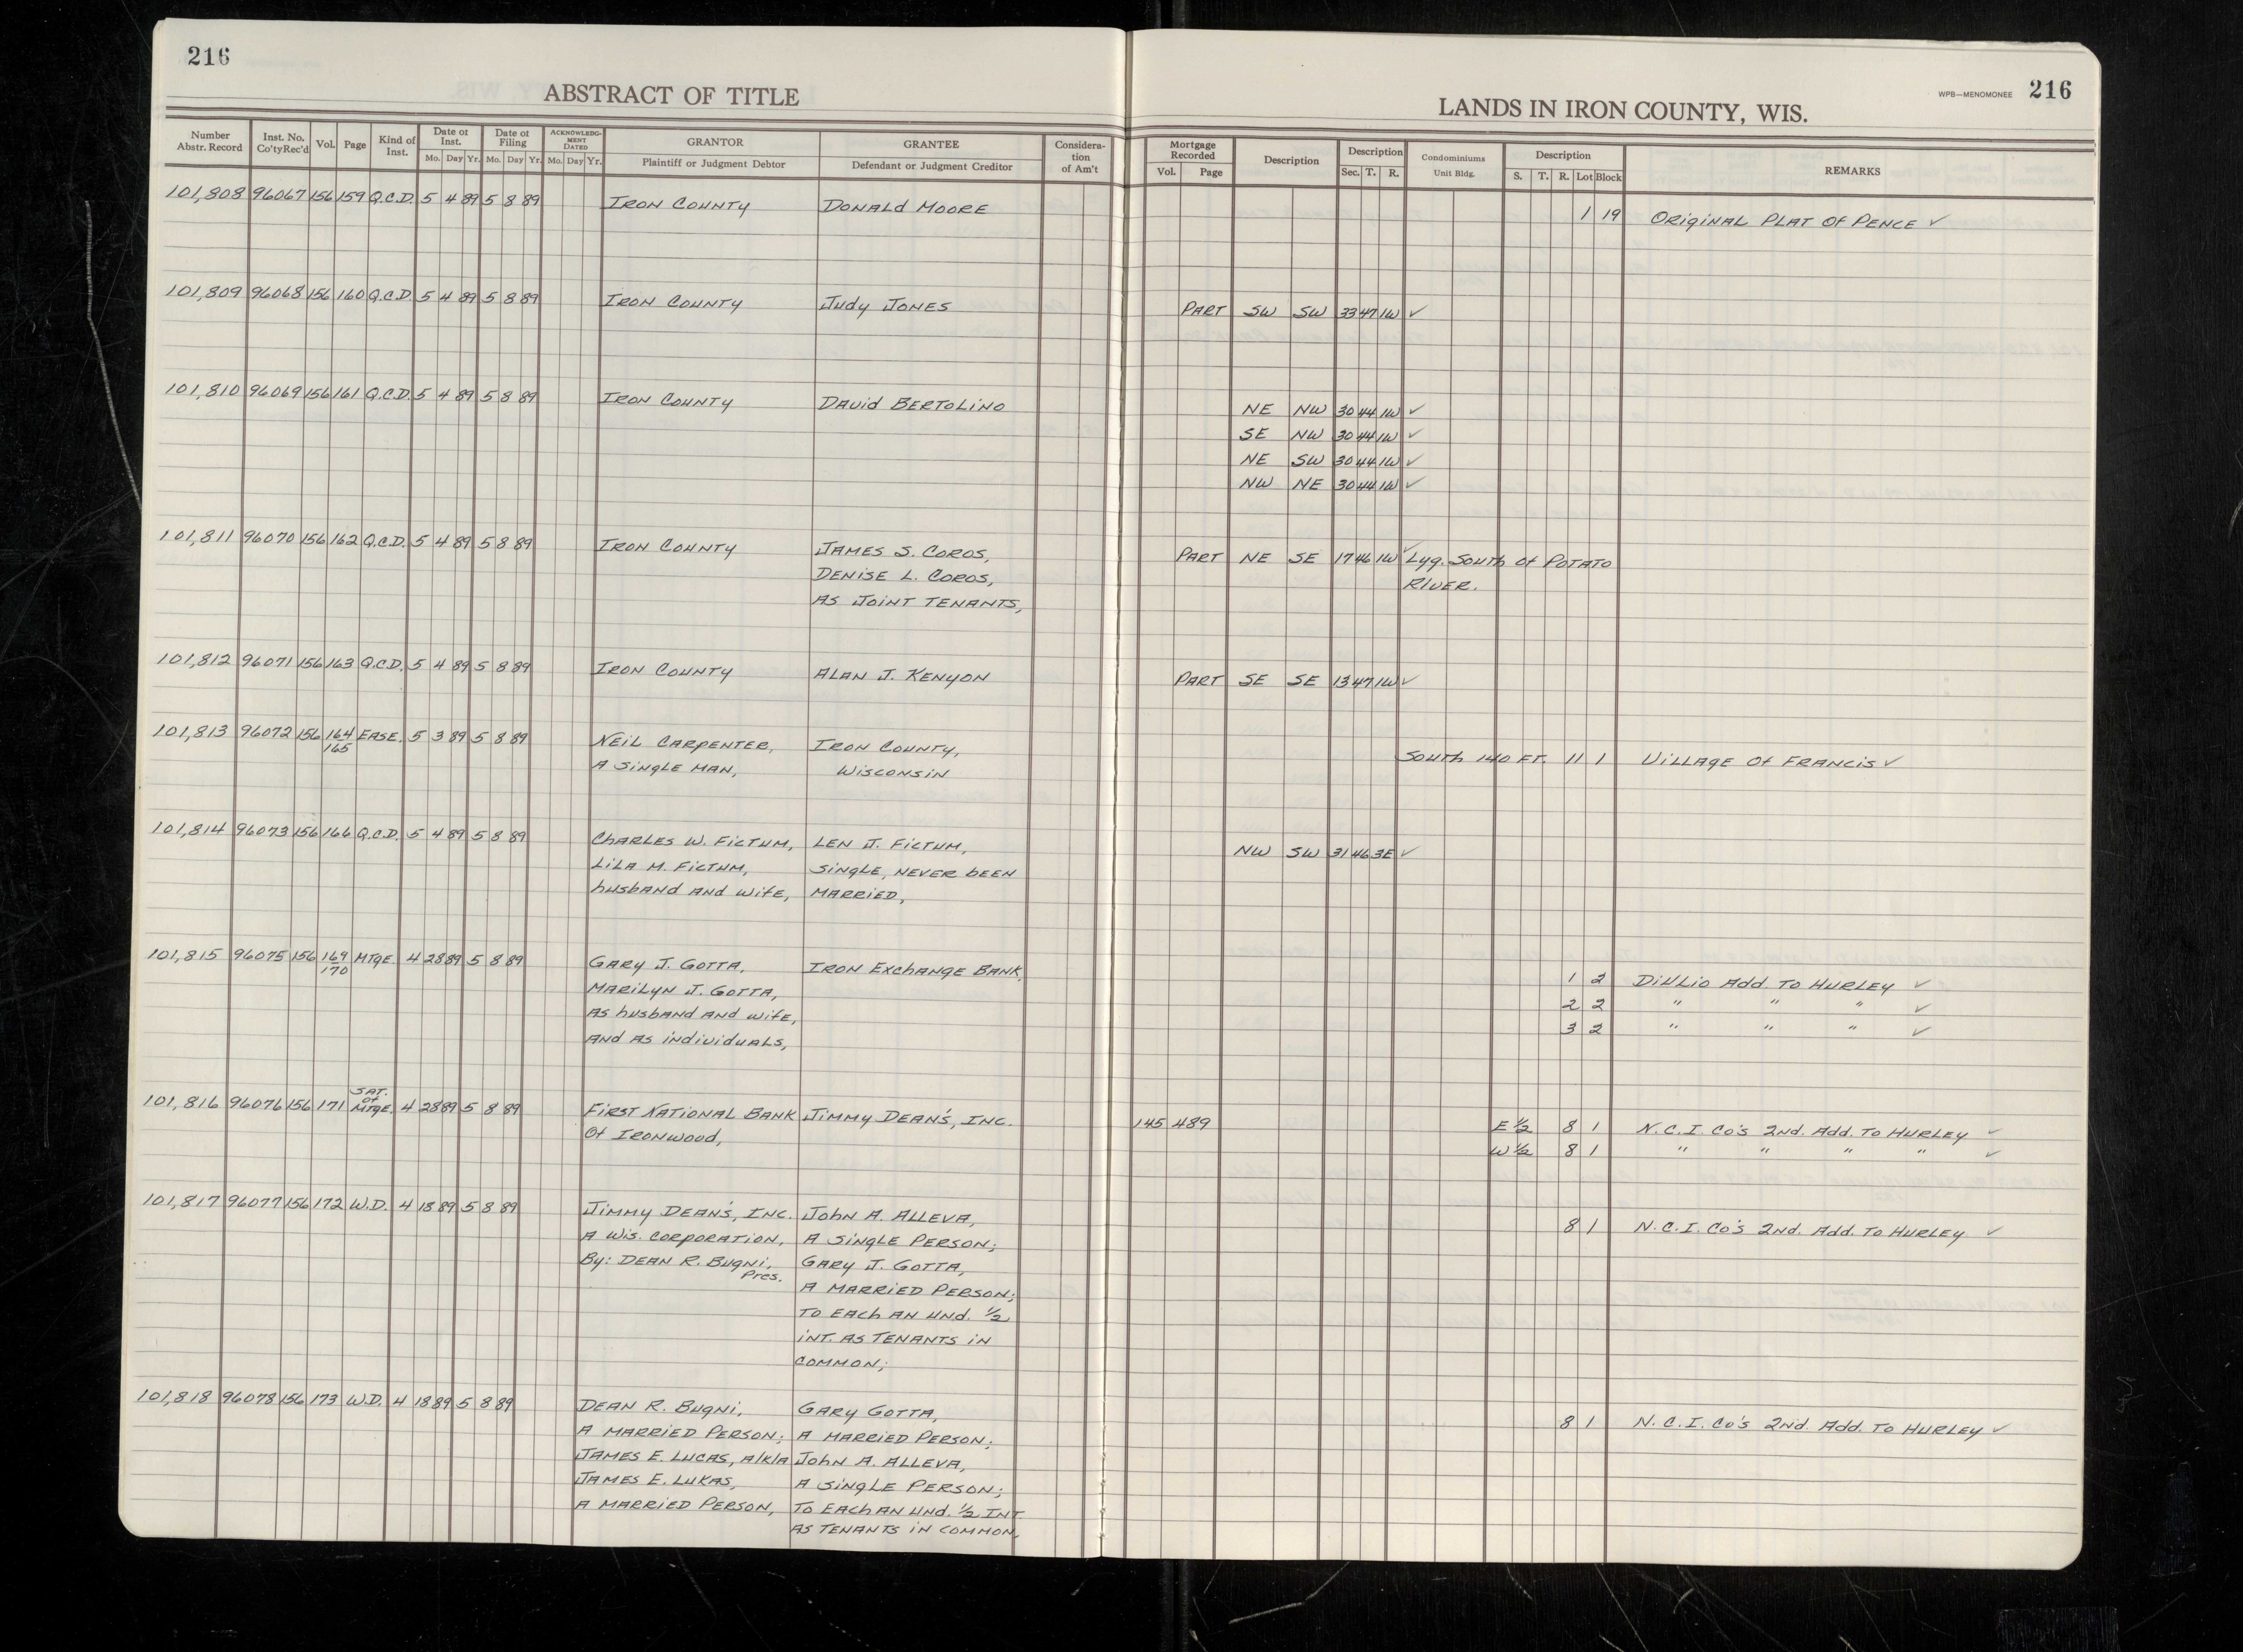 216
ABSTRACT OF TITLE
Number Abstr. Record
Inst. No. Co'ty Rec'd
Vol.
Page
Kind of Inst.
Date of Inst.
Mo. Day Yr.
Date of Filing
Mo. Day Yr.
ACKNOWLEDGMENT DATED
Mo. Day Yr.
GRANTOR
Plaintiff or Judgment Debtor
GRANTEE
Defendant or Judgment Creditor
Consideration of Am't
WPB—MENOMONEE 216
LANDS IN IRON COUNTY, WIS.
Mortgage Recorded
Vol. Page
Description
Description
Sec. T. R.
Condominiums
Unit Bldg.
Description
S. T. R. Lot Block
REMARKS
101,808 96067 156 159 Q.C.D. 5 4 89 5 8 89 IRON COUNTY DONALD MOORE 1 19 ORIGINAL PLAT OF PENCE ✓
101,809 96068 156 160 Q.C.D. 5 4 89 5 8 89 IRON COUNTY JUDY JONES PART SW SW 33 47 1W ✓
101,810 96069 156 161 Q.C.D. 5 4 89 5 8 89 IRON COUNTY DAVID BERTOLINO NE NW 30 44 1W ✓
SE NW 30 44 1W ✓
NE SW 30 44 1W ✓
NW NE 30 44 1W ✓
101,811 96070 156 162 Q.C.D. 5 4 89 5 8 89 IRON COUNTY JAMES S. COROS, PART NE SE 17 46 1W ✓ Lyg. SOUTH OF POTATO
DENISE L. COROS, RIVER.
AS JOINT TENANTS,
101,812 96071 156 163 Q.C.D. 5 4 89 5 8 89 IRON COUNTY ALAN J. KENYON PART SE SE 13 47 1W ✓
101,813 96072 156 164 165 EASE. 5 3 89 5 8 89 NEIL CARPENTER, IRON COUNTY, SOUTH 140 FT. 11 1 VILLAGE OF FRANCIS ✓
A SINGLE MAN, WISCONSIN
101,814 96073 156 166 Q.C.D. 5 4 89 5 8 89 CHARLES W. FICTUM, LEN J. FICTUM, NW SW 31 46 3E ✓
LILA M. FICTUM, SINGLE, NEVER BEEN
HUSBAND AND WIFE, MARRIED,
101,815 96075 156 169 170 MTGE. 4 28 89 5 8 89 GARY J. GOTTA, IRON EXCHANGE BANK, 1 2 DIULIO ADD. TO HURLEY ✓
MARILYN J. GOTTA, 2 2 " " " ✓
AS HUSBAND AND WIFE, 3 2 " " " ✓
AND AS INDIVIDUALS,
101,816 96076 156 171 SAT. OF MTGE. 4 28 89 5 8 89 FIRST NATIONAL BANK JIMMY DEAN'S, INC. 145 489 E ½ 8 1 N.C.I. CO'S 2ND. ADD. TO HURLEY ✓
OF IRONWOOD, W ½ 8 1 " " " " ✓
101,817 96077 156 172 W.D. 4 18 89 5 8 89 JIMMY DEAN'S, INC. JOHN A. ALLEVA, 8 1 N.C.I. CO'S 2ND. ADD. TO HURLEY ✓
A WIS. CORPORATION, A SINGLE PERSON;
BY: DEAN R. BUGNI, Pres. GARY J. GOTTA,
A MARRIED PERSON;
TO EACH AN UND. ½
INT. AS TENANTS IN
COMMON;
101,818 96078 156 173 W.D. 4 18 89 5 8 89 DEAN R. BUGNI, GARY GOTTA, 8 1 N.C.I. CO'S 2ND. ADD. TO HURLEY ✓
A MARRIED PERSON; A MARRIED PERSON;
JAMES E. LUCAS, A/K/A JOHN A. ALLEVA,
JAMES E. LUKAS, A SINGLE PERSON;
A MARRIED PERSON, TO EACH AN UND. ½ INT
AS TENANTS IN COMMON,